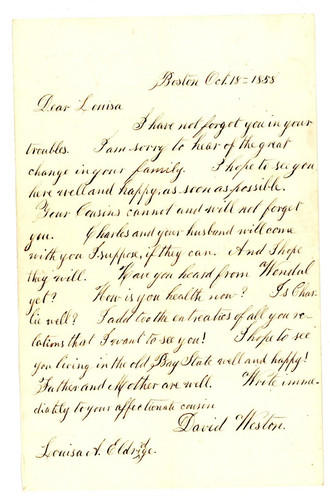 Boston Oct. 18 - 1858
Dear Louisa
I have not forgot you in your
troubles. I am sorry to hear of the great
change in your family. I hope to see you
here well and happy, as soon as possible.
Your Cousins cannot and will not forget
you. Charles and your husband will come
with you I suppose, if they can. And I hope
they will. Have you heard from Wendal
yet? How is you health now? Is Char-
lie well? I add too the entreaties of all you re-
lations that I want to see you! I hope to see
you living in the old Bay State well and happy!
Father and Mother are well. Write imme-
diately to your affectionate cousin
David Weston.
Louisa A. Eldridge.